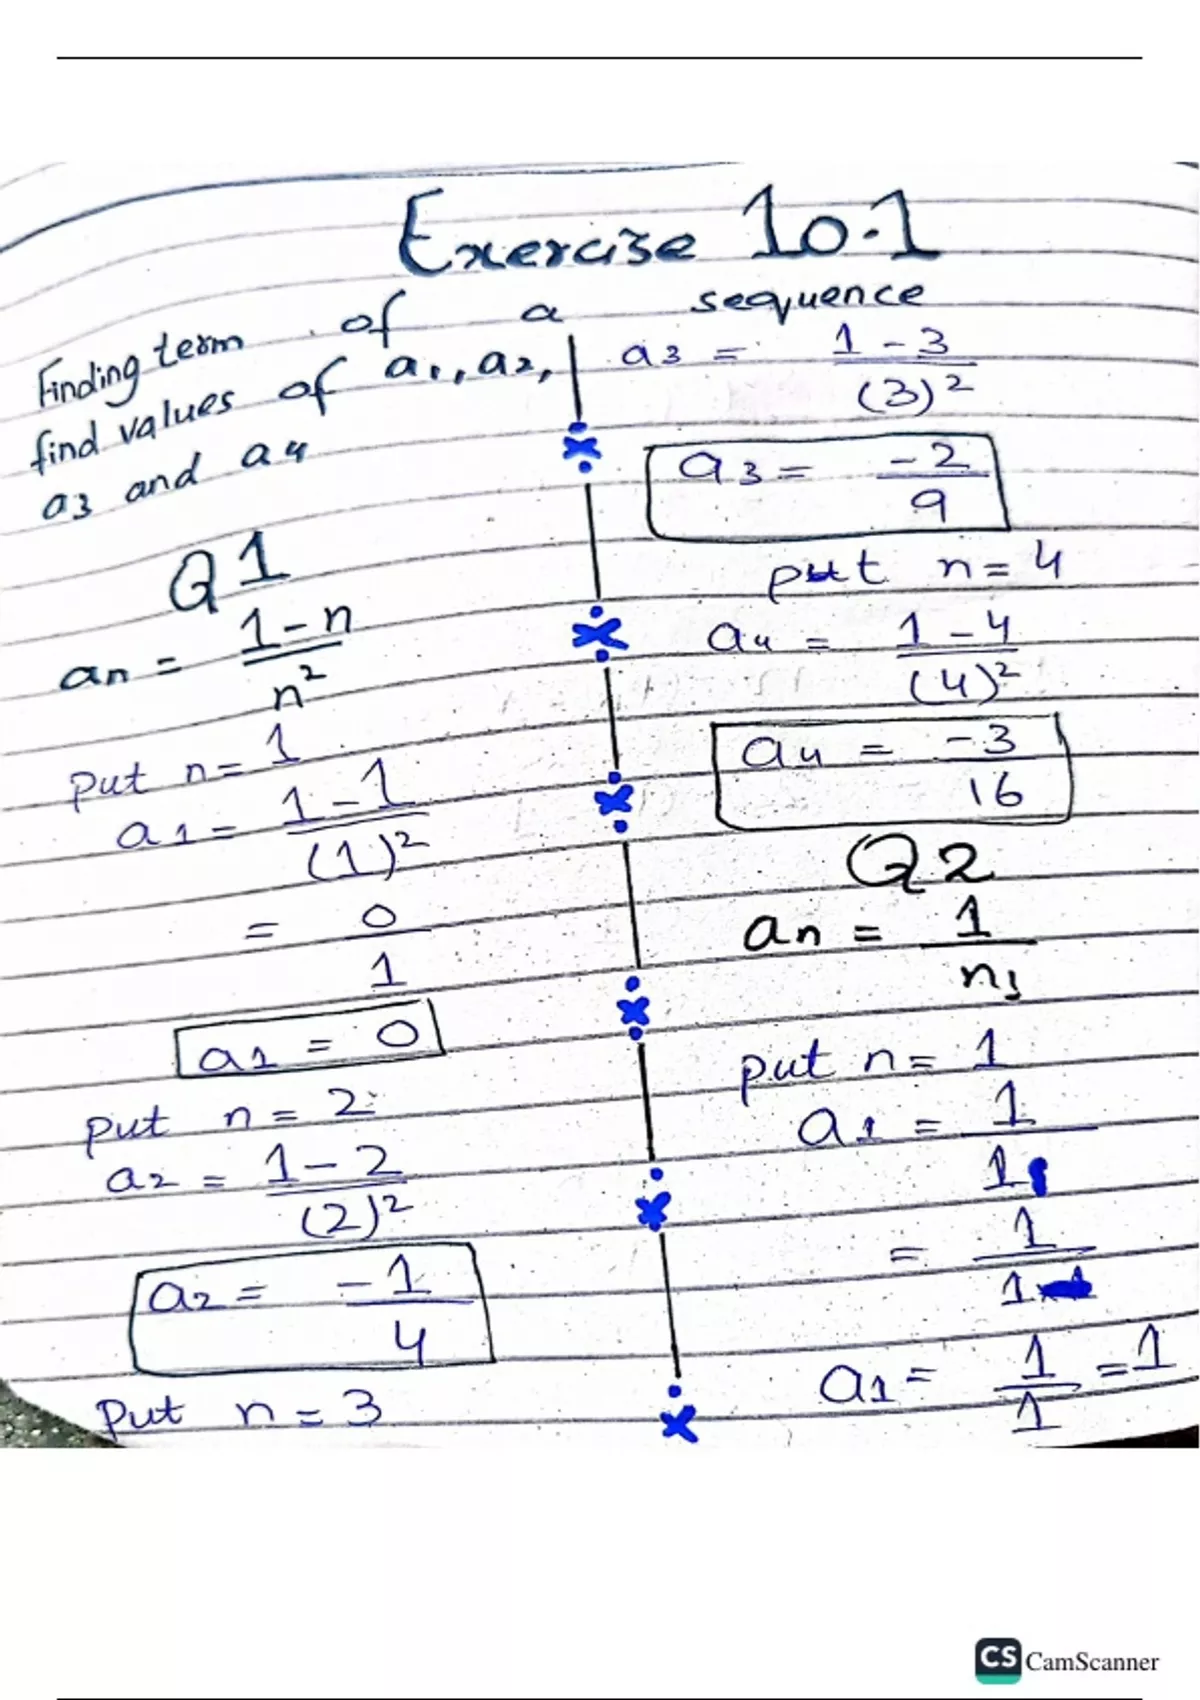 Exercise 10.1
Finding term of a sequence
find values of a1, a2,
a3 and a4
Q1
an = 1-n / n²
put n= 1
a1 = 1-1 / (1)²
= 0 / 1
a1 = 0
put n = 2
a2 = 1-2 / (2)²
a2 = -1 / 4
put n = 3
a3 = 1-3 / (3)²
a3 = -2 / 9
put n= 4
a4 = 1-4 / (4)²
a4 = -3 / 16
Q2
an = 1 / n!
put n= 1
a1 = 1 / 1!
= 1 / 1
a1 = 1 / 1 = 1
CS CamScanner